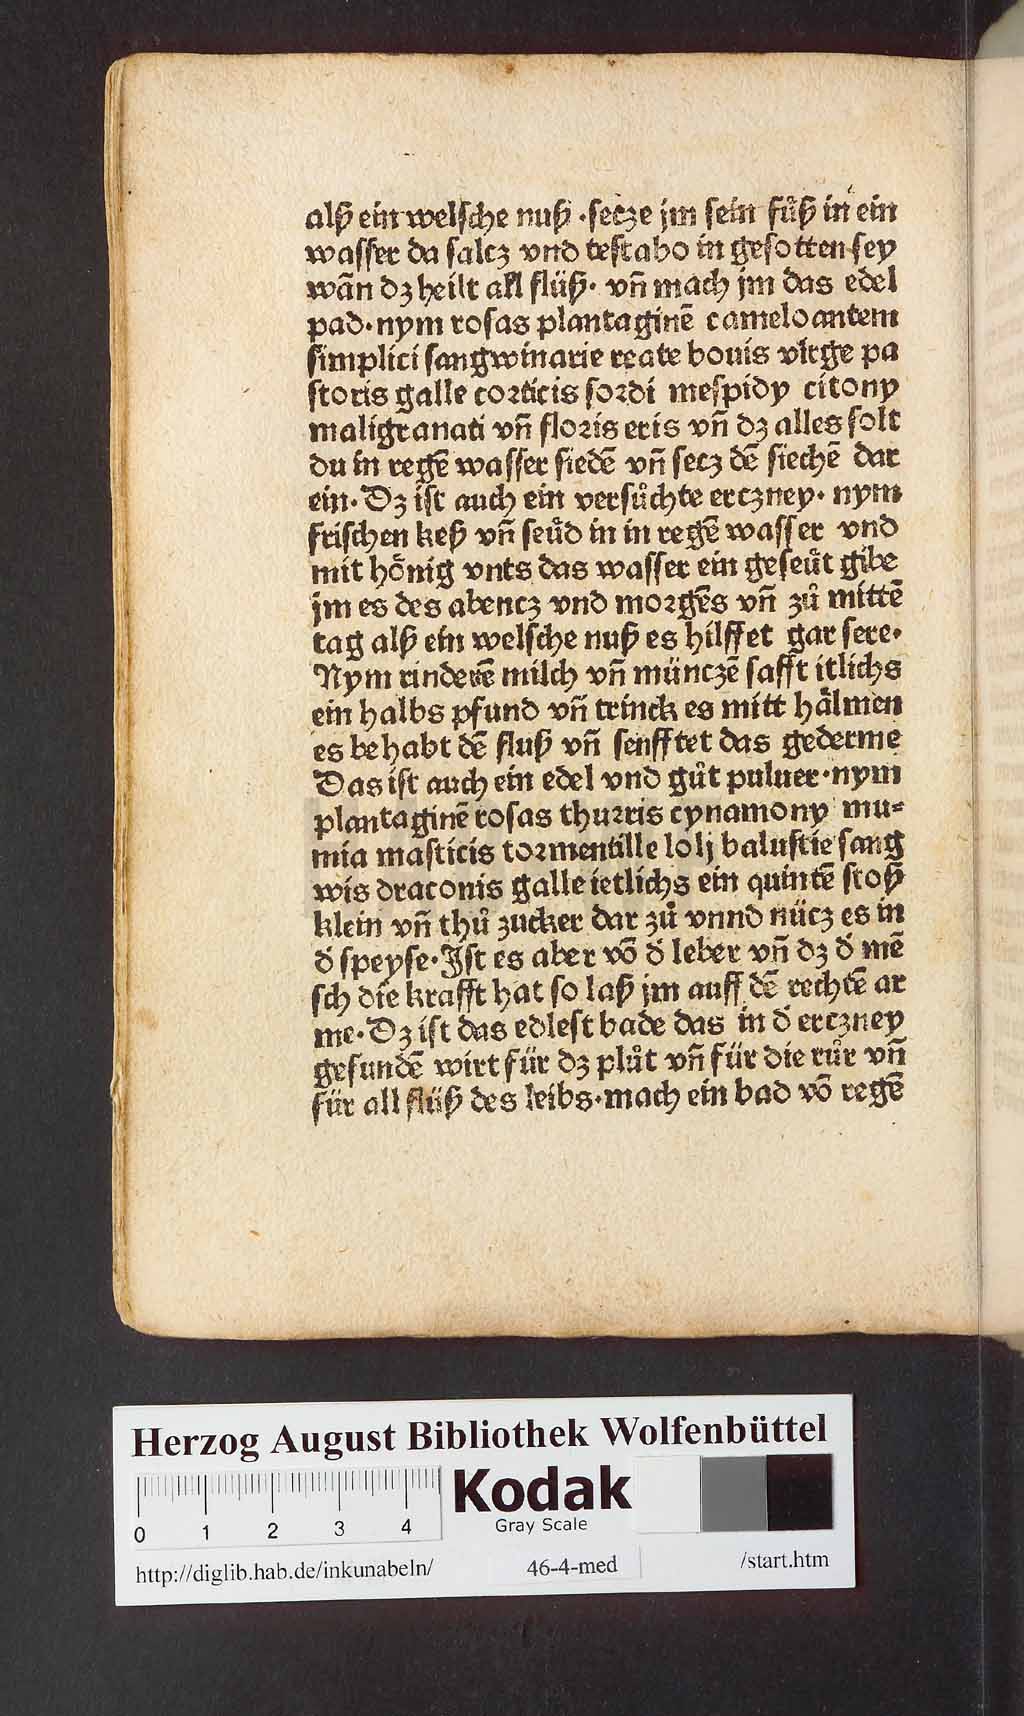 alß ein welsche nuß ·secze jm sein fuͤß in ein
wasser da salcz vnd testabo in gesotten sey
wañ dz heilt all flüß· vñ mach jm das edel
pad·nym rosas plantaginē cameloantem
simplici sangwinarie rcate bouis virge pa
storis galle corticis sordi mespidy citony
maligranati vñ floris eris vñ dz alles solt
du in regē wasser siedē vñ secz dē siechē dar
ein· Dz ist auch ein versuͦchte erczney· nym
frischen keß vñ seuͦd in in regē wasser vnd
mit hoͤnig vnts das wasser ein geseuͦt gibe
jm es des abencz vnd morgēs vñ zuͦ mittē
tag alß ein welsche nuß es hilffet gar sere·
Nym rinderē milch vñ münczē safft itlichs
ein halbs pfund vñ trinck es mitt haͤlmen
es behabt dē fluß vñ senfftet das gederme
Das ist auch ein edel vnd guͦt puluer·nym
plantaginē rosas thurris cynamony mu⸗
mia masticis tormentille lolj balustie sang
wis draconis galle ietlichs ein quintē stoß
klein vñ thuͦ zucker dar zuͦ vnnd nücz es in
d̕ speyse· Ist es aber vō d̕ leber vñ dz d̕ mē
sch die krafft hat so laß jm auff dē rechtē ar
me· Dz ist das edlest bade das in d̕ erczney
gefundē wirt für dz pluͦt vñ für die ruͦr vñ
für all flüß des leibs·mach ein bad vō regē
Herzog August Bibliothek Wolfenbüttel
0 1 2 3 4
Kodak
Gray Scale
http://diglib.hab.de/inkunabeln/ 46-4-med /start.htm